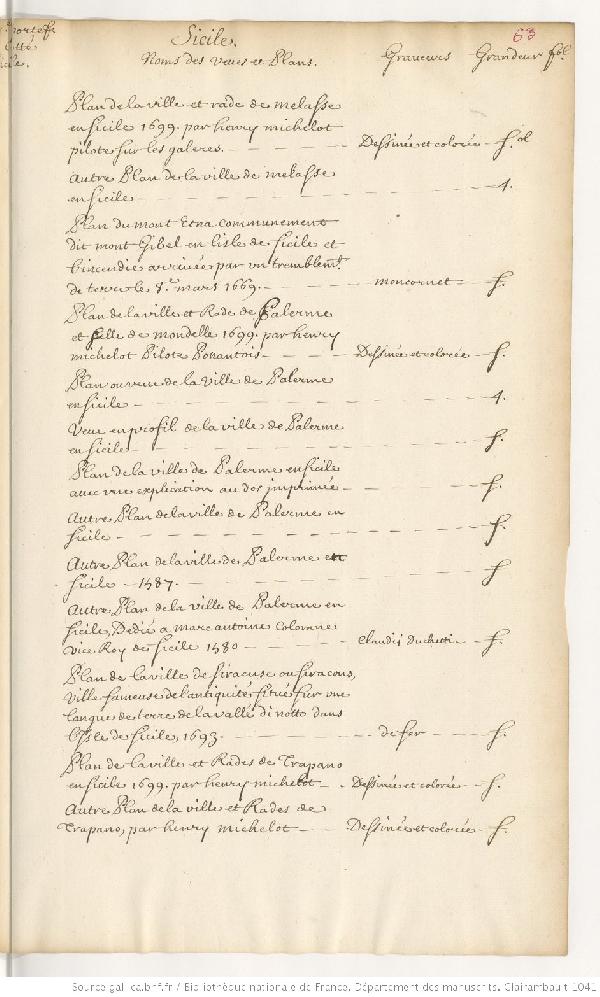 portef.
cotté
icile.
63
Sicile.
Noms des veues et Plans. Graveurs Grandeur fol.
Plan de la ville et rade de melasse
en sicile 1699. par henry michelot
pilote sur les galeres. Dessinée et colorée f.ol
Autre Plan de la ville de melasse
en sicile 4.
Plan du mont Etna communement
dit mont Gibel en lisle de sicile et
lincendie arrivée par un tremblem.t
de terre le 8.e mars 1669. moncornet f.
Plan de la ville et Rade de Palerme
et Celle de mondelle 1699. par henry
michelot Pilote Ponantois Dessinée et colorée f.
Plan ou veue de la ville de Palerme
en sicile 4.
Veue en profil de la ville de Palerme
en sicile f.
Plan de la ville de Palerme en sicile
avec une explication au dos imprimée f.
Autre Plan de la ville de Palerme en
sicile f.
Autre Plan de la ville de Palerme en
sicile 1587. f
Autre Plan de la ville de Palerme en
sicile, Dedié a marc antoine Colonne
vice Roy de sicile 1580 Claudij duchetti f.
Plan de la ville de siracuse ou siracous,
ville fameuse de lantiquité située sur une
langue de terre de la vallé di notto dans
l'Isle de sicile, 1693. de fer f.
Plan de la ville et Rades de Trapano
en sicile 1699. par henry michelot Dessinée et colorée f.
Autre Plan de la ville et Rades de
Trapano, par henry michelot Dessinée et colorée f.
Source gallica.bnf.fr / Bibliothèque nationale de France. Département des manuscrits. Clairambault 1041